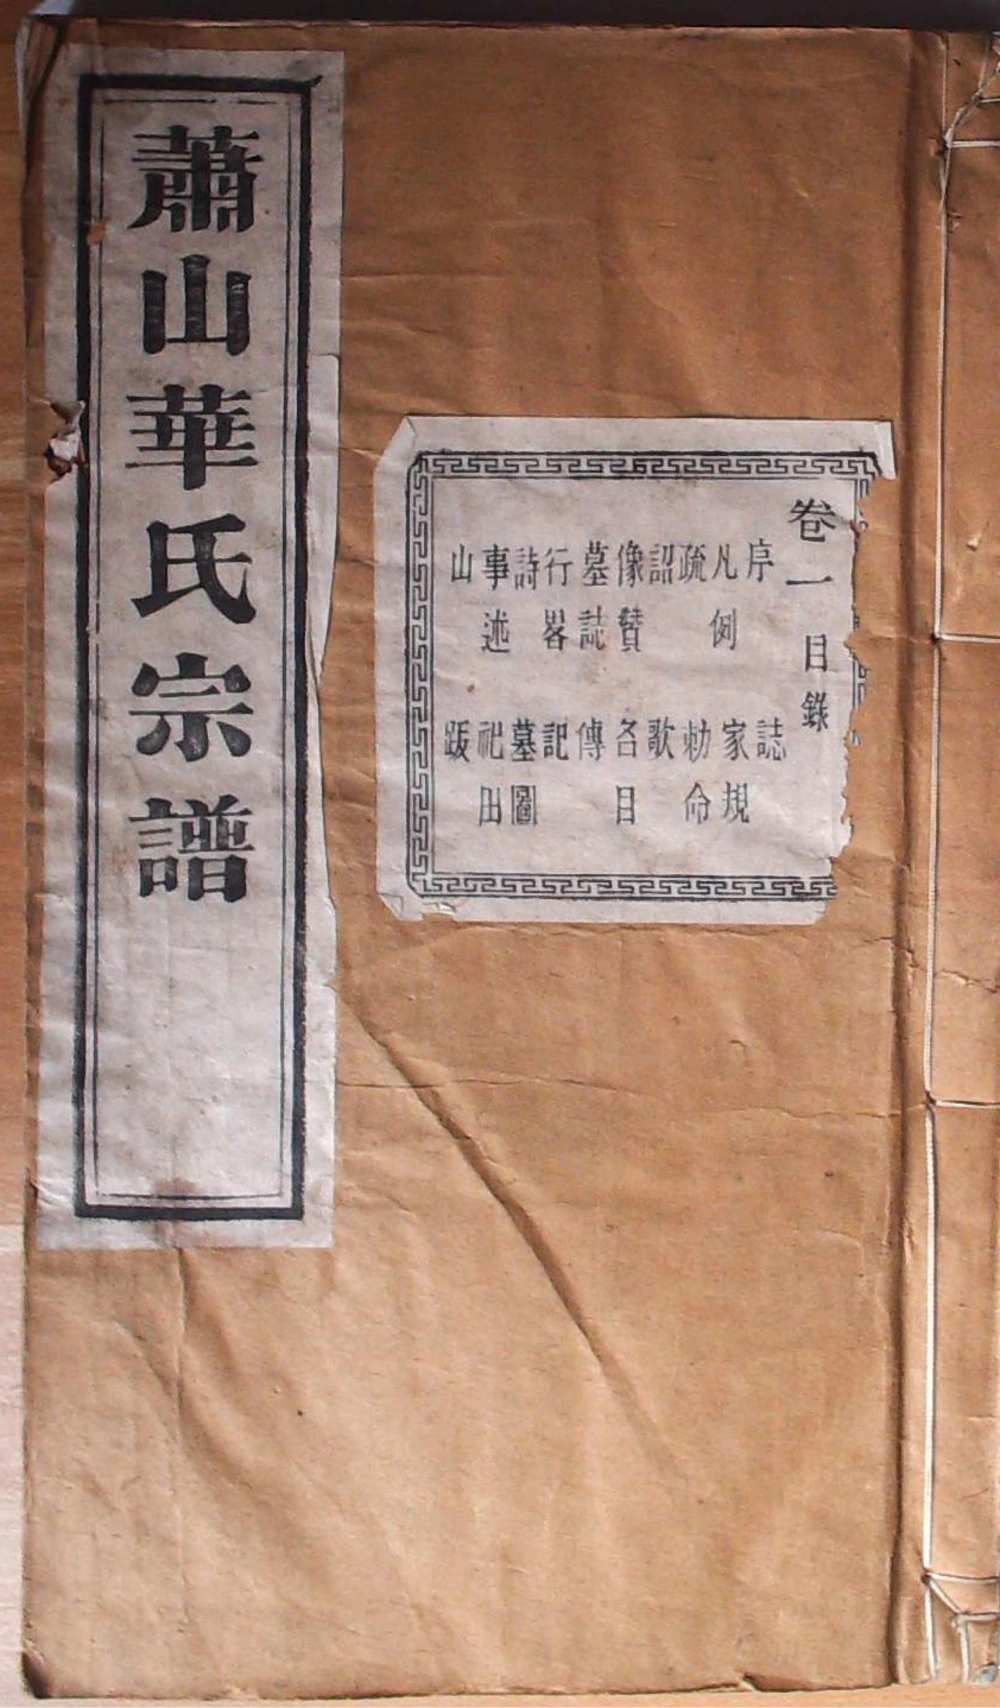 蕭山華氏宗譜
卷一目錄
序 誌
凡例 家規
疏 勅命
詔 歌
像贊 各目
墓誌 傳
行畧 記
詩 墓圖
事述 祀田
山 跋